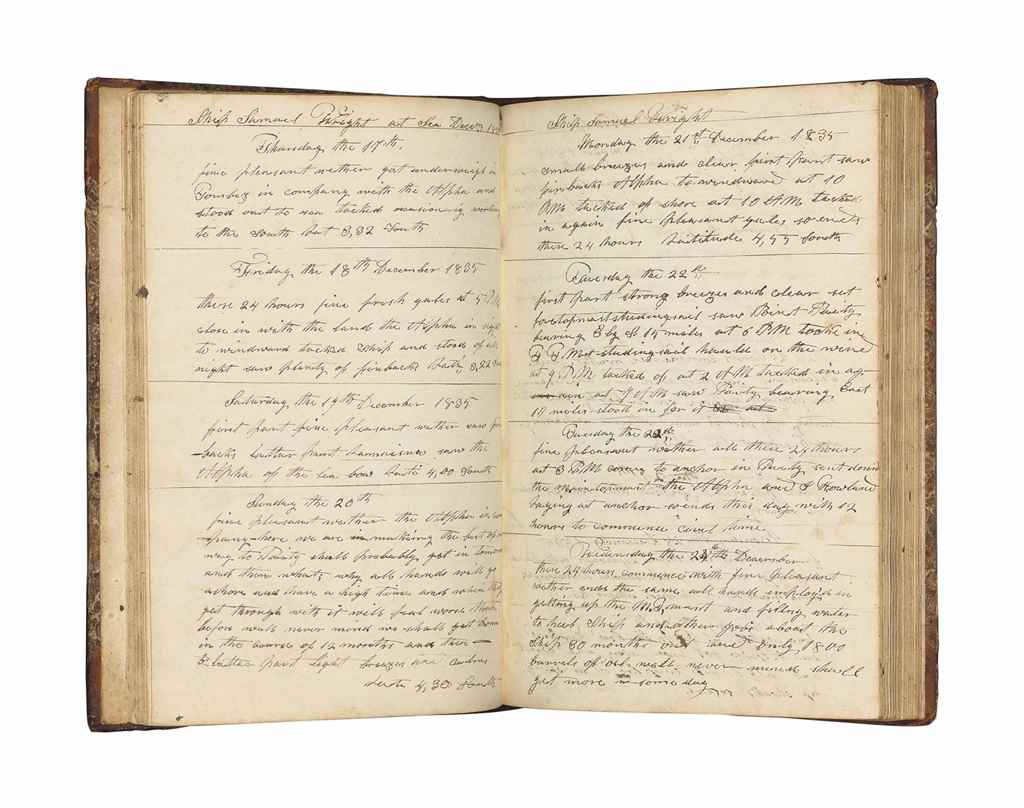 Ship Samuel Wright at Sea Decm 18
Thursday the 17th.
fine pleasant wether got underweigh in
Tombez in company with the Alpha and
stood out to sea tacked
to the South Lat 3,32 South
Friday the 18th December 1835
these 24 hours fine fresh gales at 5 P.M
close in with the land the Alpha in sigh
to windward tacked ship and stood of all
night saw plenty of finbacks Latt, 3,22 Sou
Saturday the 19th December 1835
first part fine pleasant wether saw fin
-backs latter part saw the
Alpha of the lea bow Latt 4,00 South
Sunday the 20th
fine pleasant wether the Alpha in com
-pany here we are in making the best of our
way to Paita shall probably get in tomor
and then what; why all hands will go
ashore and have a high time and when they
get through with it will feal worse than
before well never mind we shall get home
in the course of 12 months and then —
latter part light breezes and
Latt 4,30 South
Ship Samuel Wright
Monday the 21st December 1835
small breezes and clear first part saw
finbacks Alpha to windward at 10
P.M tacked of shore at 10 A.M tacked
in again fine pleasant gales so ends
these 24 hours Latitude 4,55 South
Tuesday the 22nd
first part strong breezes and clear set
foretopmaststudingsail saw Point Paita
bearing E by S 15 miles at 6 P.M tooke in
F T Mst studingsail hauld on the wind
at 9 P.M tacked of at 2 A.M tacked in ag-
ain at 7 A M saw Paita bearing East
10 miles stood in for it
Tuesday the 22nd
fine pleasant wether all these 24 hours
at 3 P.M came to anchor in Paita sent down
the main topmast the Alpha and J Howland
laying at anchor so ends this day with 12
hours to commence civil time
Wedunsday the 23rd December
these 24 hours commence with fine pleasant
wether ends the same all hands employd in
getting up the M T mast and filling water
to heel Ship and other jobs about the
Ship 30 months out and only 1800
barrels of oil well never mind shall
get more in some day